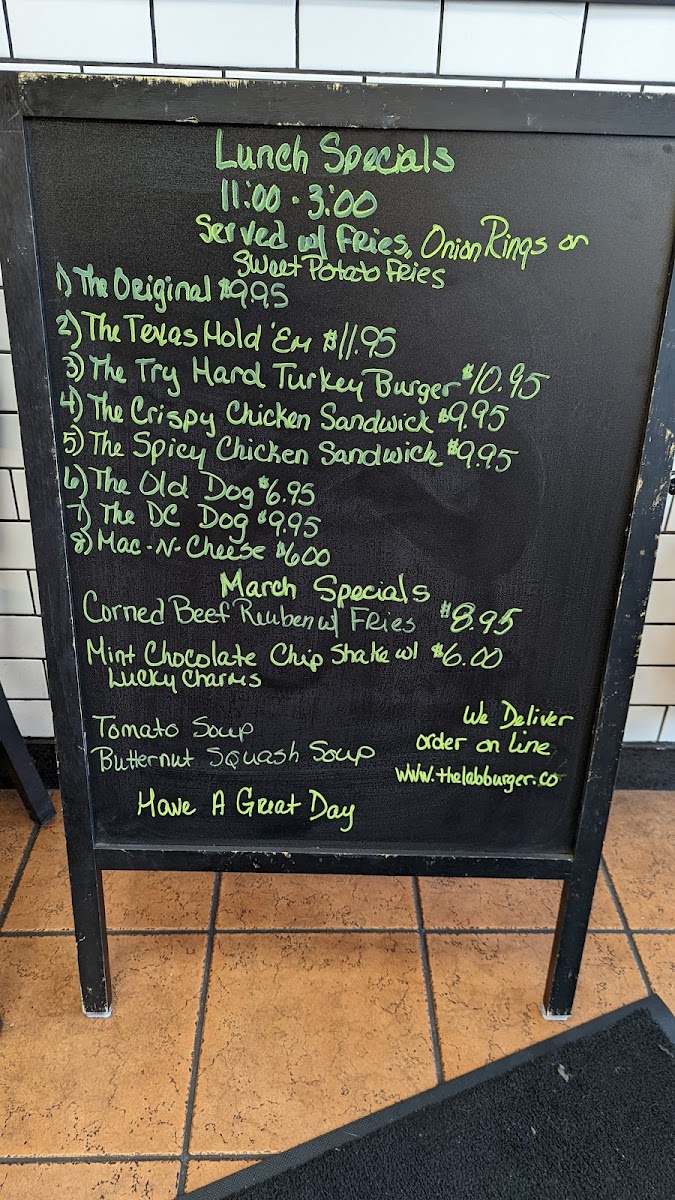 Lunch Specials
11:00 - 3:00
Served w/ Fries, Onion Rings or
Sweet Potato Fries
1) The Original $9.95
2) The Texas Hold 'Em $11.95
3) The Try Hard Turkey Burger $10.95
4) The Crispy Chicken Sandwick $9.95
5) The Spicy Chicken Sandwick $9.95
6) The Old Dog $6.95
7) The DC Dog $9.95
8) Mac-N-Cheese $6.00
March Specials
Corned Beef Reuben w/ Fries $8.95
Mint Chocolate Chip Shake w/ $6.00
Lucky Charms
Tomato Soup
Butternut Squash Soup
We Deliver
order on line
www.thelabburger.co
Have A Great Day